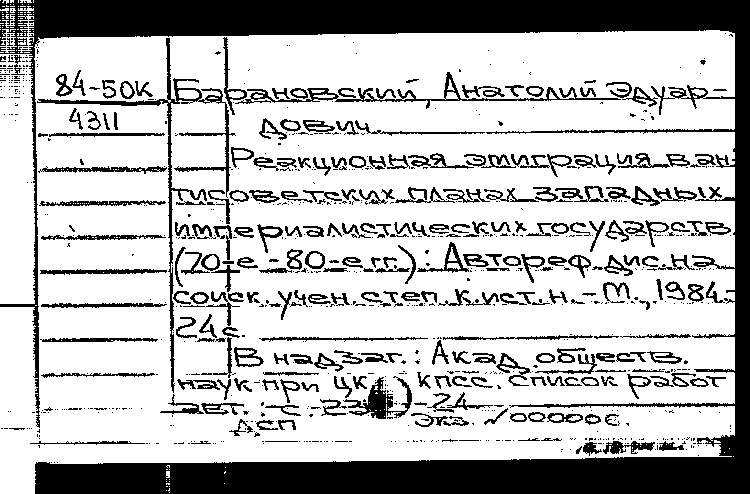 84-50К Барановский, Анатолий Эдуар-
4311 дович.
Реакционная эмиграция в ан-
тисоветских планах западных
империалистических государств
(70-е - 80-е гг.) : Автореф. дис. на
соиск. учен. степ. к. ист. н. - М., 1984. -
24 с.
В надзаг.: Акад. обществ.
наук при ЦК КПСС. Список работ
авт.: с. 23-24
ДСП Экз. №